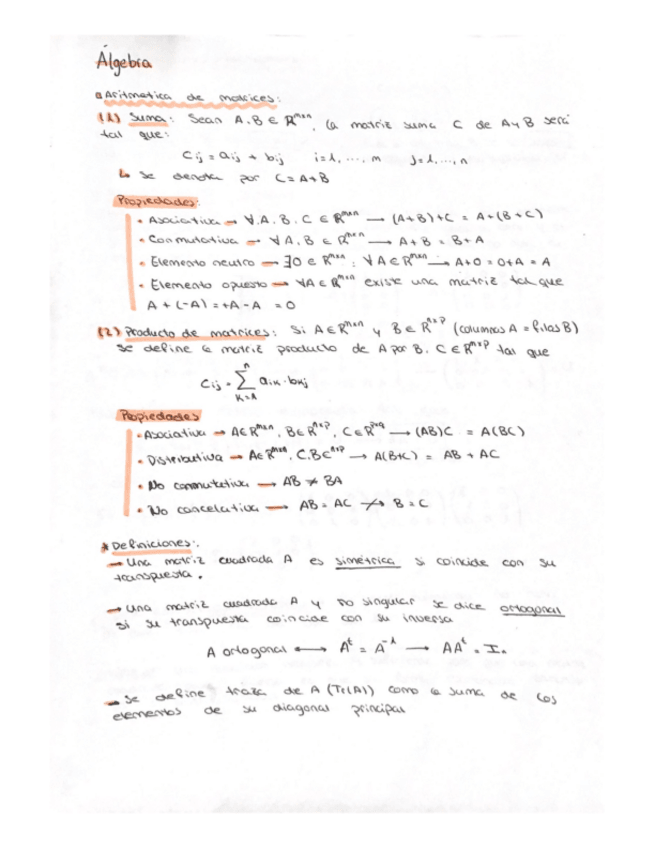 Álgebra
Aritmetica de matrices:
(1) Suma: Sean A, B ∈ ℝᵐˣⁿ, la matriz suma C de A y B será
tal que:
Cij = aij + bij   i=1, ..., m   j=1, ..., n
↳ se denota por C = A+B
Propiedades:
• Asociativa → ∀ A, B, C ∈ ℝᵐˣⁿ → (A+B)+C = A+(B+C)
• Conmutativa → ∀ A, B ∈ ℝᵐˣⁿ → A+B = B+A
• Elemento neutro → ∃0 ∈ ℝᵐˣⁿ : ∀A ∈ ℝᵐˣⁿ → A+0 = 0+A = A
• Elemento opuesto → ∀A ∈ ℝᵐˣⁿ existe una matriz tal que
A + (-A) = +A - A = 0
(2) Producto de matrices: Si A ∈ ℝᵐˣⁿ y B ∈ ℝⁿˣᵖ (columnas A = filas B)
se define la matriz producto de A por B, C ∈ ℝᵐˣᵖ tal que
n
Cij = ∑ aik · bkj
k=1
Propiedades
• Asociativa → A ∈ ℝᵐˣⁿ, B ∈ ℝⁿˣᵖ, C ∈ ℝᵖˣq → (AB)C = A(BC)
• Distributiva → A ∈ ℝᵐˣⁿ, C,B ∈ ⁿˣᵖ → A(B+C) = AB + AC
• No conmutativa → AB ≠ BA
• No cancelativa → AB = AC ↛ B = C
* Definiciones:
→ Una matriz cuadrada A es simétrica si coincide con su
transpuesta.
→ Una matriz cuadrada A y no singular se dice ortogonal
si su transpuesta coincide con su inversa
A ortogonal ⟷ Aᵗ = A⁻¹ → AAᵗ = I.
→ Se define traza de A (Tr(A)) como la suma de los
elementos de su diagonal principal